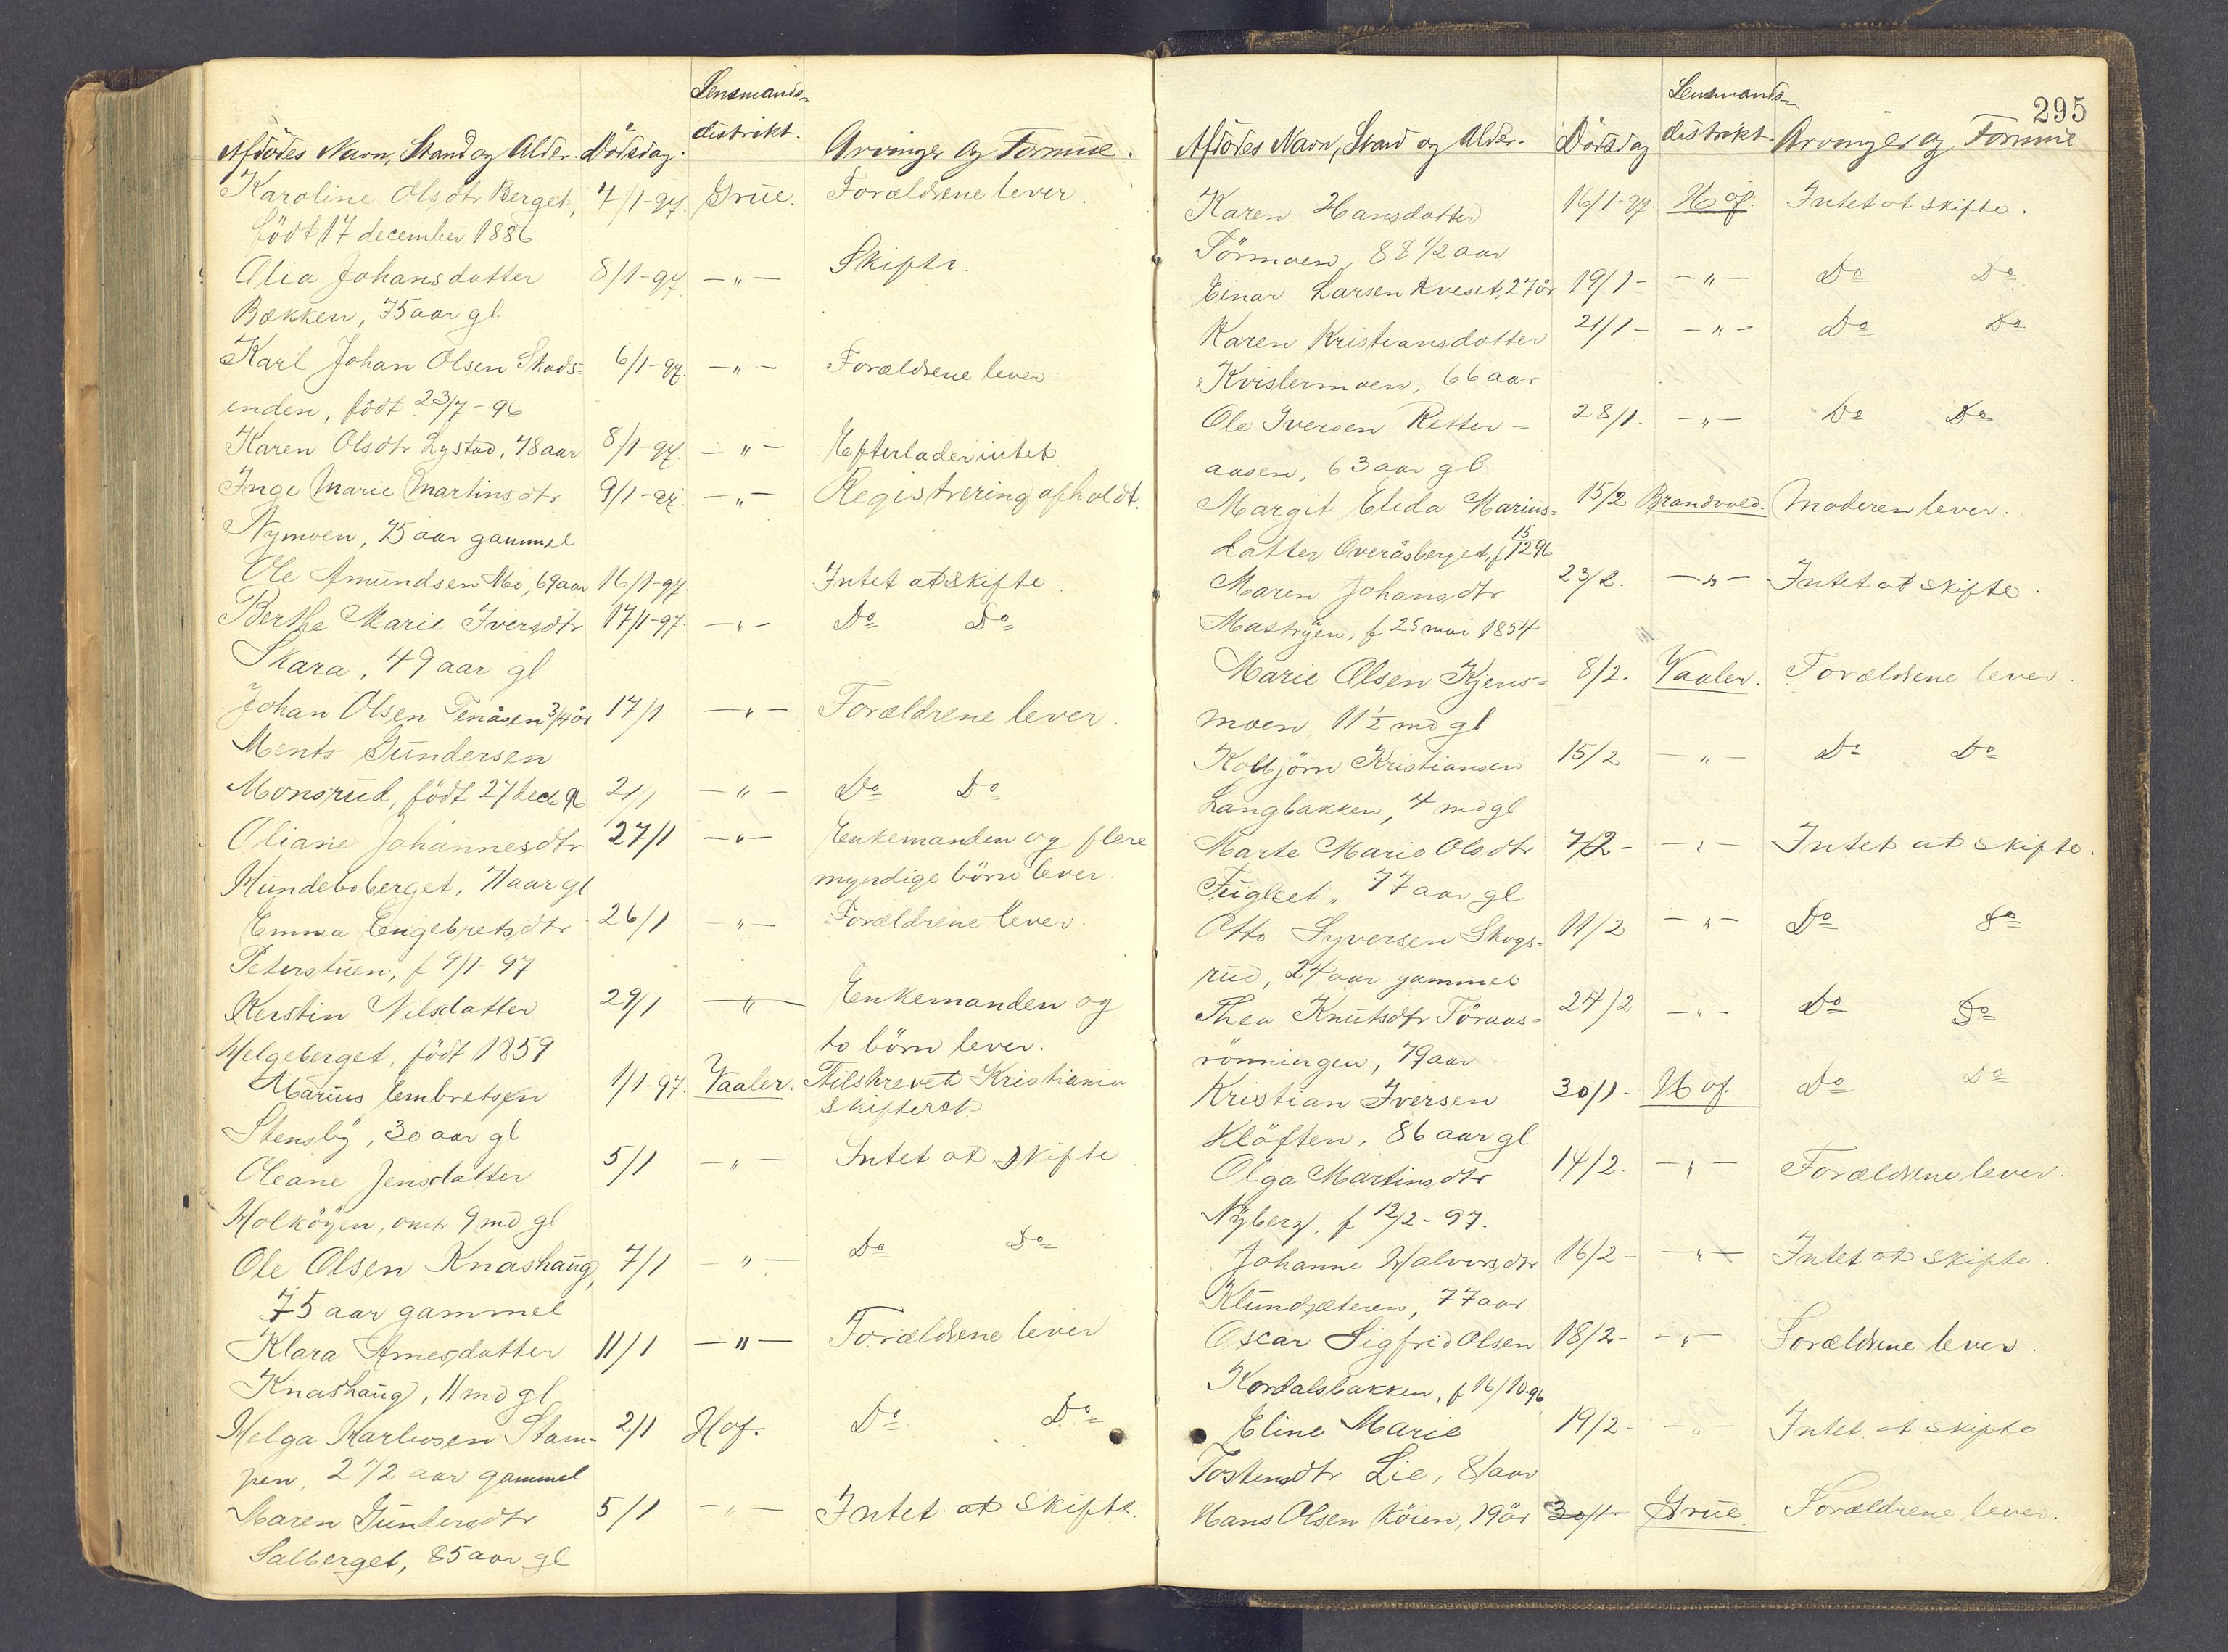 Lensmands-
Afdödes Navn, Stand og Alder. Dödsdag. distrikt. Arvinger og Formue.
Karoline Olsdtr Berget, 4/1-97. Grue. Forældrene lever.
födt 17 december 1886
Olia Johansdatter 8/1-97 -"- Skifte.
Bækken, 75 aar gl
Karl Johan Olsen Skods- 6/1-97. -"- Forældrene lever
enden, födt 23/7-96
Karen Olsdtr Lystad, 48 aar 8/1-97. -"- Efterlader intet
Inge Marie Martinsdtr 9/1-97. -"- Registrering afholdt.
Nymoen, 75 aar gammel
Ole Amundsen Mo, 69 aar 16/1-97. Intet at skifte
Berthe Marie Iversdtr 17/1-97. -"- Do Do
Skara, 49 aar gl
Johan Olsen Tenåsen 3/4 år 17/1 -"- Forældrene lever.
Ments Gundersen
Monsrud, födt 27 dec 96 21/1 -"- Do Do
Oliane Johannesdtr 27/1 -"- Enkemanden og flere
Hundeboberget, 71 aar gl myndige börn lever.
Emma Engebretsdtr 26/1 -"- Forældrene lever.
Peterstuen, f 9/1-97
Kerstin Nilsdatter 29/1 -"- Enkemanden og
Helgeberget, födt 1859 to börn lever.
Marius Embretsen 1/1-97. Vaaler. Tilskrevet Kristiania
Stensby, 30 aar gl skifteret.
Oleane Jensdatter 5/1 -"- Intet at skifte
Holköyen, omtr 9 md gl
Ole Olsen Knashaug, 7/1 -"- Do Do
75 aar gammel
Klara Arnesdatter 11/1 -"- Forældrene lever
Knashaug, 11 md gl
Helga Karlusen Stam- 2/1 Hof. Do Do
pen, 2 1/2 aar gammel
Maren Gundersdtr 5/1 -"- Intet at skifte.
Salberget, 85 aar gl
295
Lensmands-
Afdödes Navn, Stand og Alder. Dödsdag distrikt. Arvinger og Formue
Karen Hansdatter 16/1-97. Hof. Intet at skifte.
Törmoen, 88 1/2 aar
Einar Larsen Kveset, 27 år 19/1- -"- Do Do
Karen Kristiansdatter 21/1- -"- Do Do
Kvislermoen, 66 aar
Ole Iversen Retter- 28/1. -"- Do Do
aasen, 63 aar gl
Margit Elida Marius- 15/2 Brandvold. Moderen lever.
datter Overåsberget, f 15/12 96
Maren Johansdtr 23/2. -"- Intet at skifte.
Mastryen, f 25 mai 1854
Marie Olsen Kjens- 8/2. Vaaler. Forældrene lever.
moen 11 1/2 md gl
Kolbjörn Kristiansen 15/2 -"- Do Do
Langbakken, 4 md gl
Marte Marie Olsdtr 7/2- -"- Intet at skifte.
Fugleset, 77 aar gl
Otto Syversen Skogs- 11/2 -"- Do Do
rud, 24 aar gammel
Thea Knutsdtr Töraas- 24/2 -"- Do Do
rönningen, 79 aar
Kristian Iversen 30/1- Hof. Do Do
Klöften, 86 aar gl
Olga Martinsdtr 14/2. -"- Forældrene lever.
Nyberg, f 12/2-97.
Johanne Halvorsdtr 16/2- -"- Intet at skifte.
Klundsæteren, 77 aar
Oscar Sigfrid Olsen 18/2- -"- Forældrene lever.
Kordalsbakken, f 16/10.96
Eline Marie 19/2- -"- Intet at skifte
Tostensdtr Lie, 81 aar
Hans Olsen Köien, 19 år 30/1- Grue. Forældrene lever.